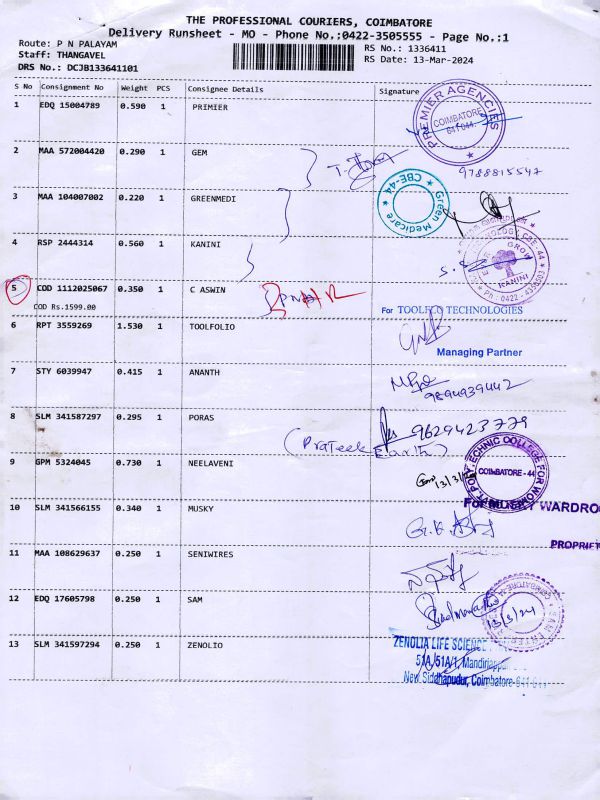 THE PROFESSIONAL COURIERS, COIMBATORE
Delivery Runsheet - MO - Phone No.:0422-3505555 - Page No.:1
Route: P N PALAYAM
RS No.: 1336411
Staff: THANGAVEL
RS Date: 13-Mar-2024
DRS No.: DCJB133641101
S No Consignment No Weight PCS Consignee Details Signature
1 EDQ 15004789 0.590 1 PRIMIER
PREMIER AGENCIES
COIMBATORE
641 044
2 MAA 572004420 0.290 1 GEM
9788815547
3 MAA 104007002 0.220 1 GREENMEDI
Green Medicare
CBE-44
4 RSP 2444314 0.560 1 KANINI
KANINI
5 COD 1112025067 0.350 1 C ASWIN
COD Rs.1599.00
For TOOLFLO TECHNOLOGIES
6 RPT 3559269 1.530 1 TOOLFOLIO
Managing Partner
7 STY 6039947 0.415 1 ANANTH
9894939442
8 SLM 341587297 0.295 1 PORAS
9629423779
(Prateek Earth)
9 GPM 5324045 0.730 1 NEELAVENI
13/3/24
COIMBATORE - 44
10 SLM 341566155 0.340 1 MUSKY
WARDRO
PROPRIET
11 MAA 108629637 0.250 1 SENIWIRES
12 EDQ 17605798 0.250 1 SAM
13/3/24
13 SLM 341597294 0.250 1 ZENOLIO
ZENOLIA LIFE SCIENCE
51A/51A/1, Mandiriappar
New Siddhapudur, Coimbatore-641